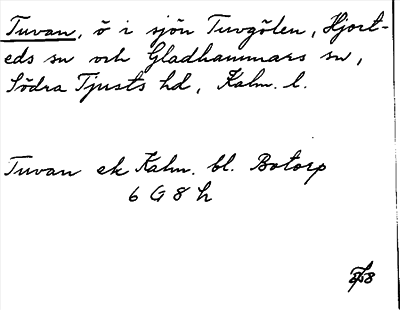 Tuvan, ö i sjön Tuvgölen, Hjort-
eds sn och Gladhammars sn,
Södra Tjusts hd, Kalm. l.
Tuvan ek Kalm. bl. Botorp
6 G 8 h